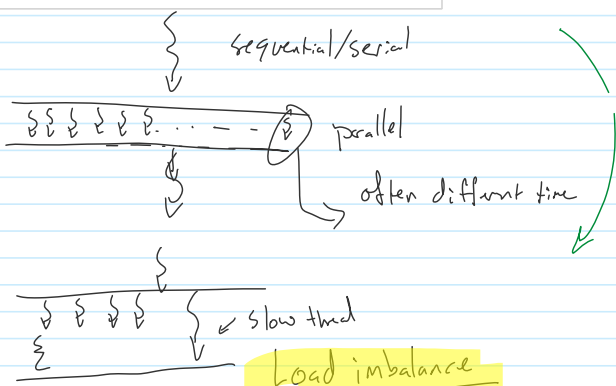 sequential/serial
parallel
often different time
slow thread
Load imbalance